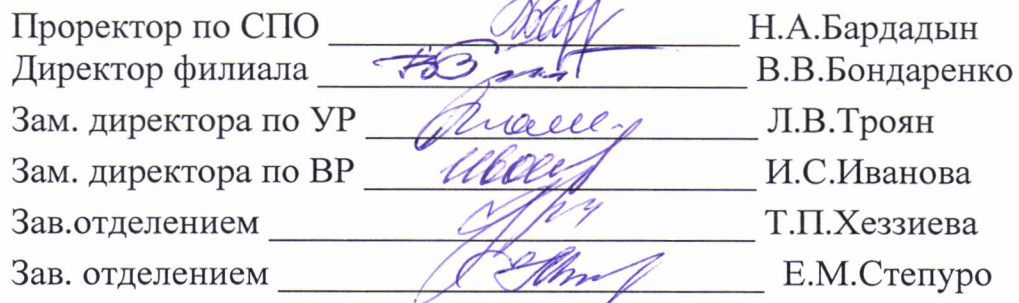 Проректор по СПО Н.А.Бардадын
Директор филиала В.В.Бондаренко
Зам. директора по УР Л.В.Троян
Зам. директора по ВР И.С.Иванова
Зав.отделением Т.П.Хеззиева
Зав. отделением Е.М.Степуро